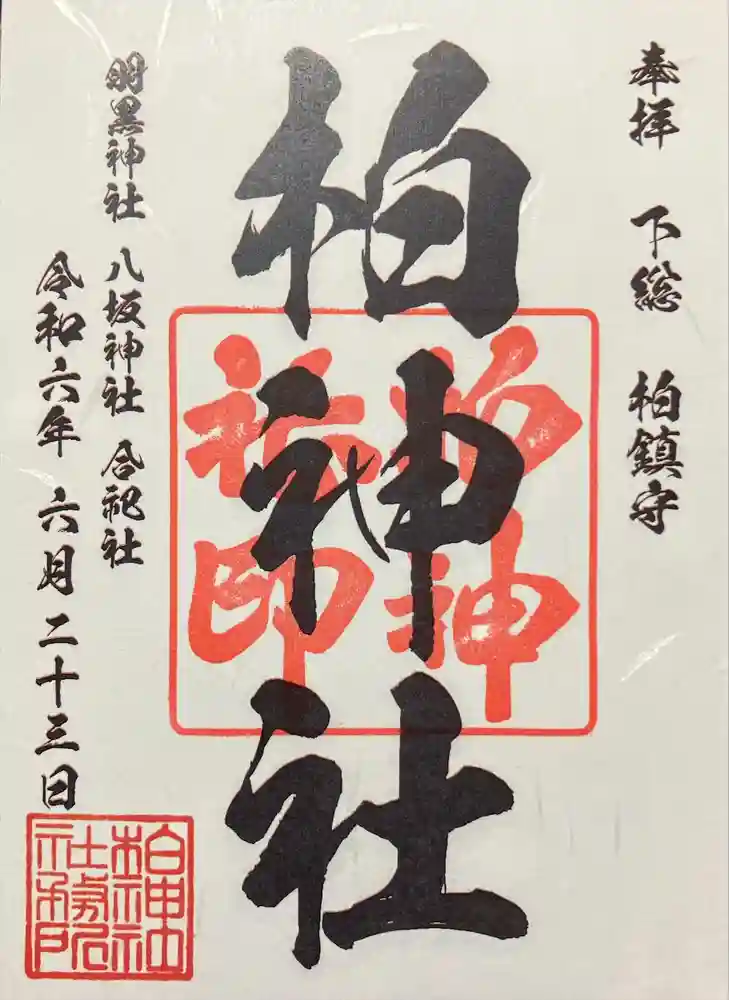 奉拝　下総　柏鎮守
柏神社
柏神
社印
羽黒神社　八坂神社　合祀社
令和六年　六月　二十三日
柏神社
社務所